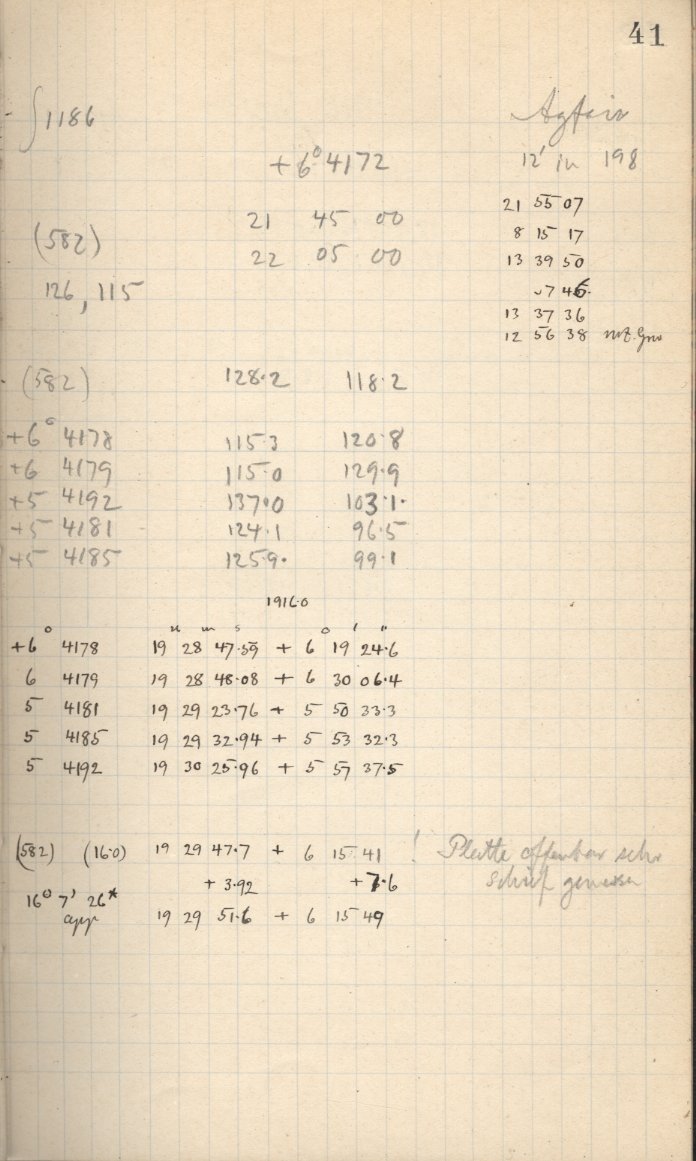 41
∫1186
+6° 4172
21 45 00
22 05 00
(582)
126, 115
12' in 198
21 55 07
8 15 17
13 39 50
13 37 36
12 56 38
(582) 128.2 118.2
+6° 4178 115.3 120.8
+6 4179 115.0 129.9
+5 4192 137.0 103.1
+5 4181 124.1 96.5
+5 4185 125.9 99.1
1916.0
h m s ° ' "
+6° 4178 19 28 47.59 + 6 19 24.6
6 4179 19 28 48.08 + 6 30 06.4
5 4181 19 29 23.76 + 5 50 33.3
5 4185 19 29 32.94 + 5 53 32.3
5 4192 19 30 25.96 + 5 57 37.5
(582) (16.0) 19 29 47.7 + 6 15 41 ! Platte offenbar sehr
+ 3.92 + 7.6 schief gemessen
16° 7' 26*
app 19 29 51.6 + 6 15 49